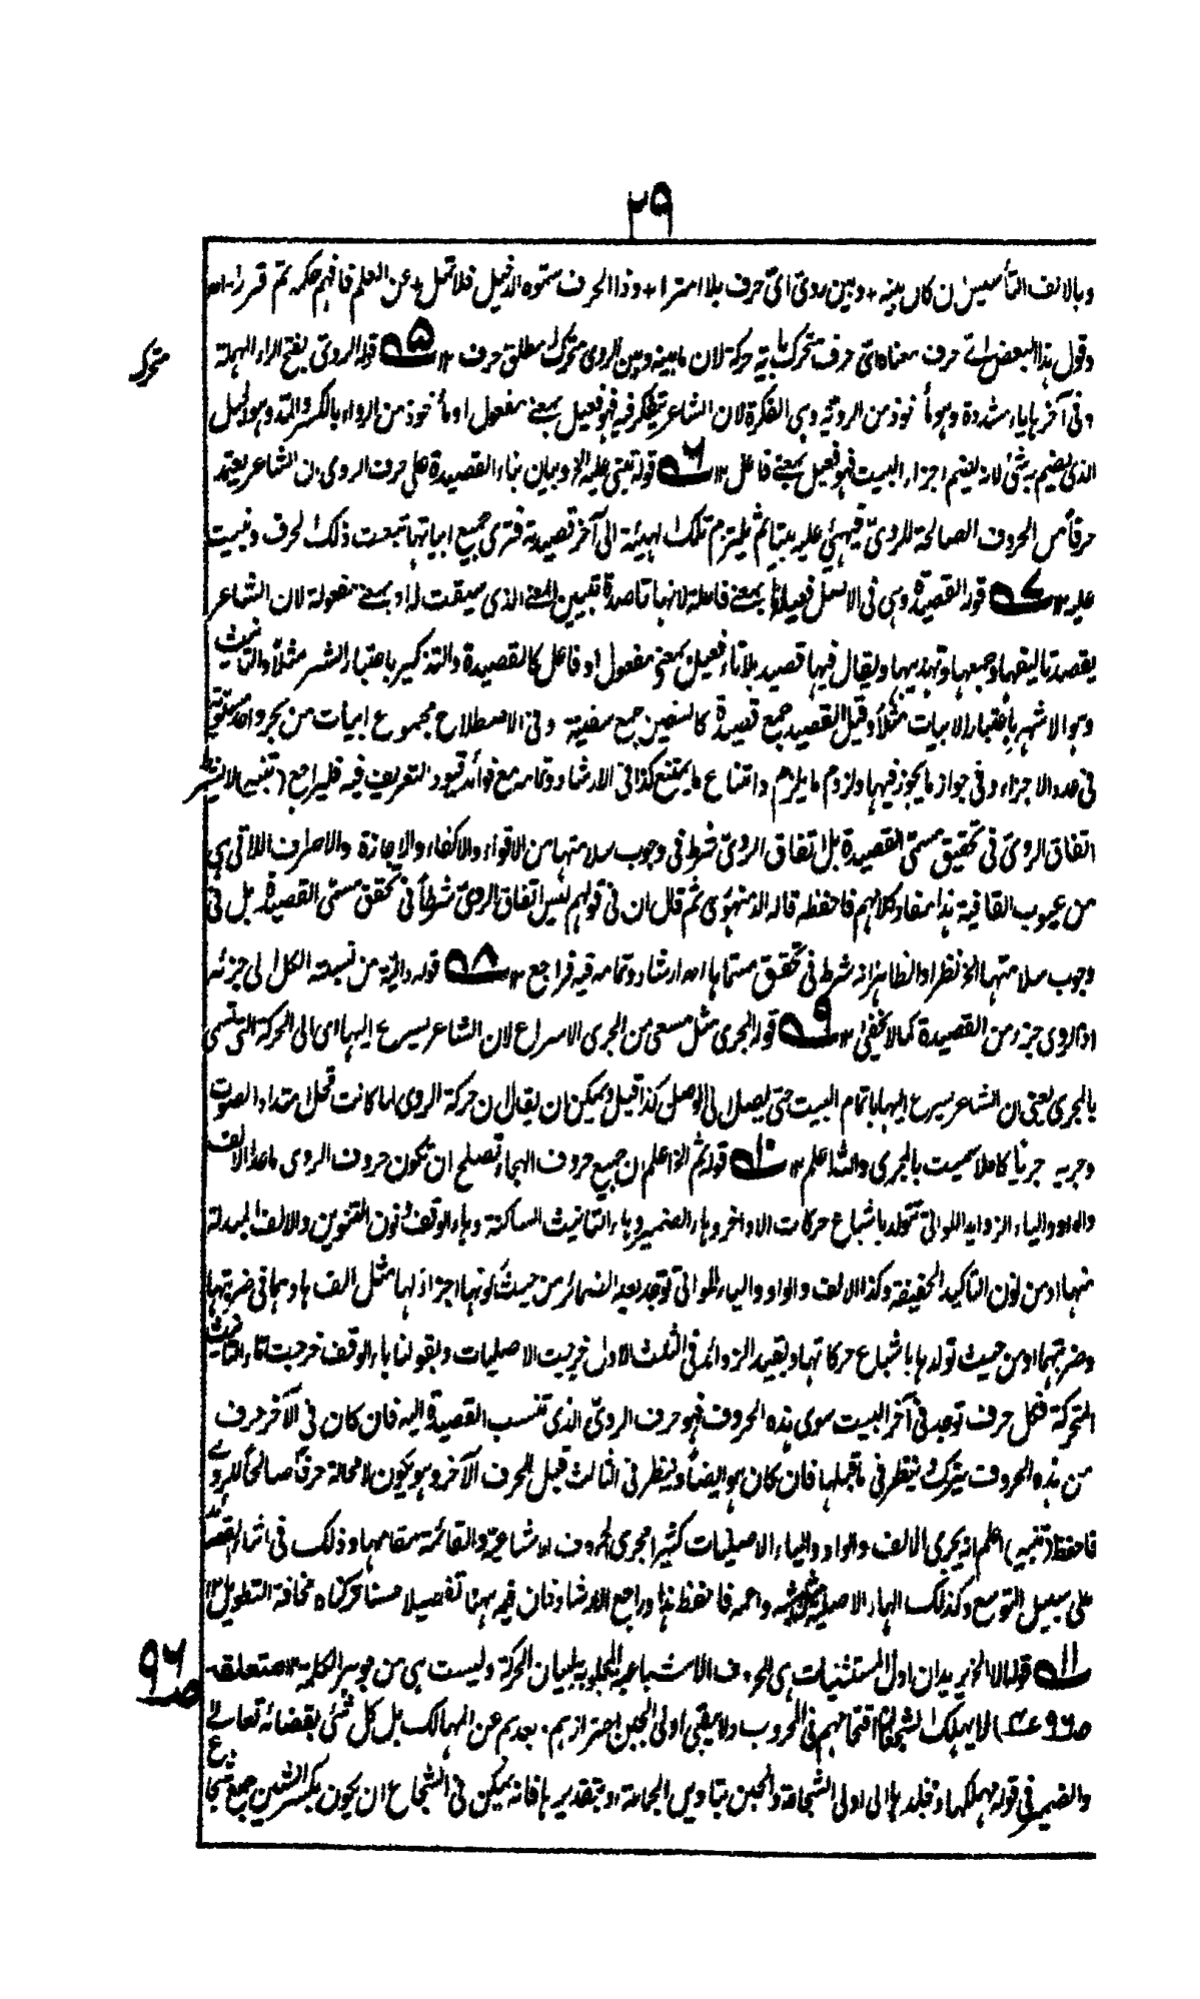 ٢٩
وبالالف التأسيس ان كان بينه + وبين روي اي حرف بلا امترا + وذا الحرف سموه الدخيل فلا تمل + عن العلم فافهم حكمه ثم قررا اه
وقول هذا البعض اي حرف معناه اي حرف متحرك باية حركة لان ما بينه وبين الروي متحرك لا مطلق حرف ١٢ ۵ قوله الروي بفتح الراء المهملة
متحرك
وفي آخرها ياء مشددة وهو مأخوذ من الروية وهي الفكرة لان الشاعر يتفكر فيه فهو فعيل بمعنى مفعول او مأخوذ من الرواء بالكسر والمد وهو الحبل
الذي يضم به شئ لانه يضم اجزاء البيت فهو فعيل بمعنى فاعل ١٢ ۶ قوله تبنى عليه الخ وبيان بناء القصيدة على حرف الروي ان الشاعر يعتمد
حرفا من الحروف الصالحة للروي فيهيئ عليه بيتا ثم يلتزم تلك الهيئة الى آخر قصيدته فترى جميع ابياتها تبعت ذلك الحرف وبنيت
عليه ١٢ ۷ قوله القصيدة وهي في الاصل فعيلة بمعنى فاعلة لانها قاصدة تبيين المعنى الذي سيقت له او بمعنى مفعولة لان الشاعر
يقصد تاليفها وجمعها وتهذيبها ويقال فيها قصيد بلا تاء فعيل بمعنى مفعول او فاعل كالقصيدة والتذكير باعتبار الشعر مثلا والتانيث
وهو الاشهر باعتبار الابيات مثلا وقيل القصيد جمع قصيدة كالسفين جمع سفينة وفي الاصطلاح مجموع ابيات من بحر واحد مستوية
في عدد الاجزاء وفي جواز ما يجوز فيها ولزوم ما يلزم وامتناع ما يمتنع كذا في الارشاد وتمامه مع فوائد قيود التعريف فيه فليراجع (تنبيه) لا يشترط
اتفاق الروي في تحقيق مسمى القصيدة بل اتفاق الروي شرط في وجوب سلامتها من الاقواء والاكفاء والاجازة والاصراف اللاتي هي
من عيوب القافية هذا مفاد كلامهم فاحفظه قاله الدمنهوري ثم قال ان في قولهم ليس اتفاق الروي شرطا في تحقق مسمى القصيدة بل في
وجوب سلامتها الخ نظرا والظاهر انه شرط في تحقق مسماها اه ارشاد وتمامه فيه فراجع ١٢ ۸ قوله والية من نسبته الكل الى جزئه
اذ الروي جزء من القصيدة كما لا يخفى ١٢ ۹ قوله المجرى مثل مسعى من الجرى الاسراع لان الشاعر يسرع اليها اى الى الحركة التى تسمى
بالمجرى يعني ان الشاعر يسرع اليها باتمام البيت حتى يصل الى الوصل كذا قيل ويمكن ان يقال ان حركة الروي لما كانت محل امتداد الصوت
وجريه جريا كاملا سميت بالمجرى والله اعلم ١٢ ۱۰ قوله ثم الخ اعلم ان جميع حروف الهجاء تصلح ان تكون حروف الروي ماعدا الالف
والواو والياء الزوايد اللواتي تتولد باشباع حركات الاواخر وهاء الضمير وهاء التانيث الساكنة وهاء الوقف ونون التنوين والالف المبدلة
منها او من نون التاكيد الخفيفة وكذا الالف والواو والياء اللواتي توجد بعد الضمائر من حيث كونها اجزاء لها مثل الف ها وهما في ضربتها
وضربتهما او من حيث تولدها باشباع حركاتها وبقيد الزوائد في الثلث الاول خرجت الاصليات وبقولنا هاء الوقف خرجت تاء التانيث
المتحركة فكل حرف توجد في آخر البيت سوى هذه الحروف فهو حرف الروي الذي تنسب القصيدة اليه فان كان في الآخر حرف
من هذه الحروف يترك وينظر في ما قبلها فان كان هو ايضا وينظر في الثالث قبل الحرف الآخر وهو يكون لا محالة حرفا صالحا للروي
فاحفظ (تنبيه) اعلم انه يجرى الالف والواو والياء الاصليات كثيرا مجرى الحروف الاشباعية والقائمة مقامها وذلك في اثناء القصائد
على سبيل التوسع وكذلك الهاء الاصلية واحمد فاحفظ هذا وراجع الارشاد فان فيه ههنا تفصيلا حسنا تركناه مخافة التطويل ١٢
۱۱ قوله الا الخ يريد ان اول المستثنيات هي الحروف الاشباعية المجلوبة لبيان الحركة وليست هي من جوهر الكلمة ١٢ متعلقه
ص٩٦
ص٩٦ ) لا يهلك الشجعان اقتحامهم في الحروب ولا يبقي اولى الجبن احترازهم وبعدهم عن المهالك بل كل شئ بقضائه تعالى
والضمير في قوله مهلكها ومخلدها الى اولى الشجاعة والجبن بتاويل الجماعة او بتقديرها فانه يمكن في الشجاع ان يكون بكسر الشين جمع شجاع